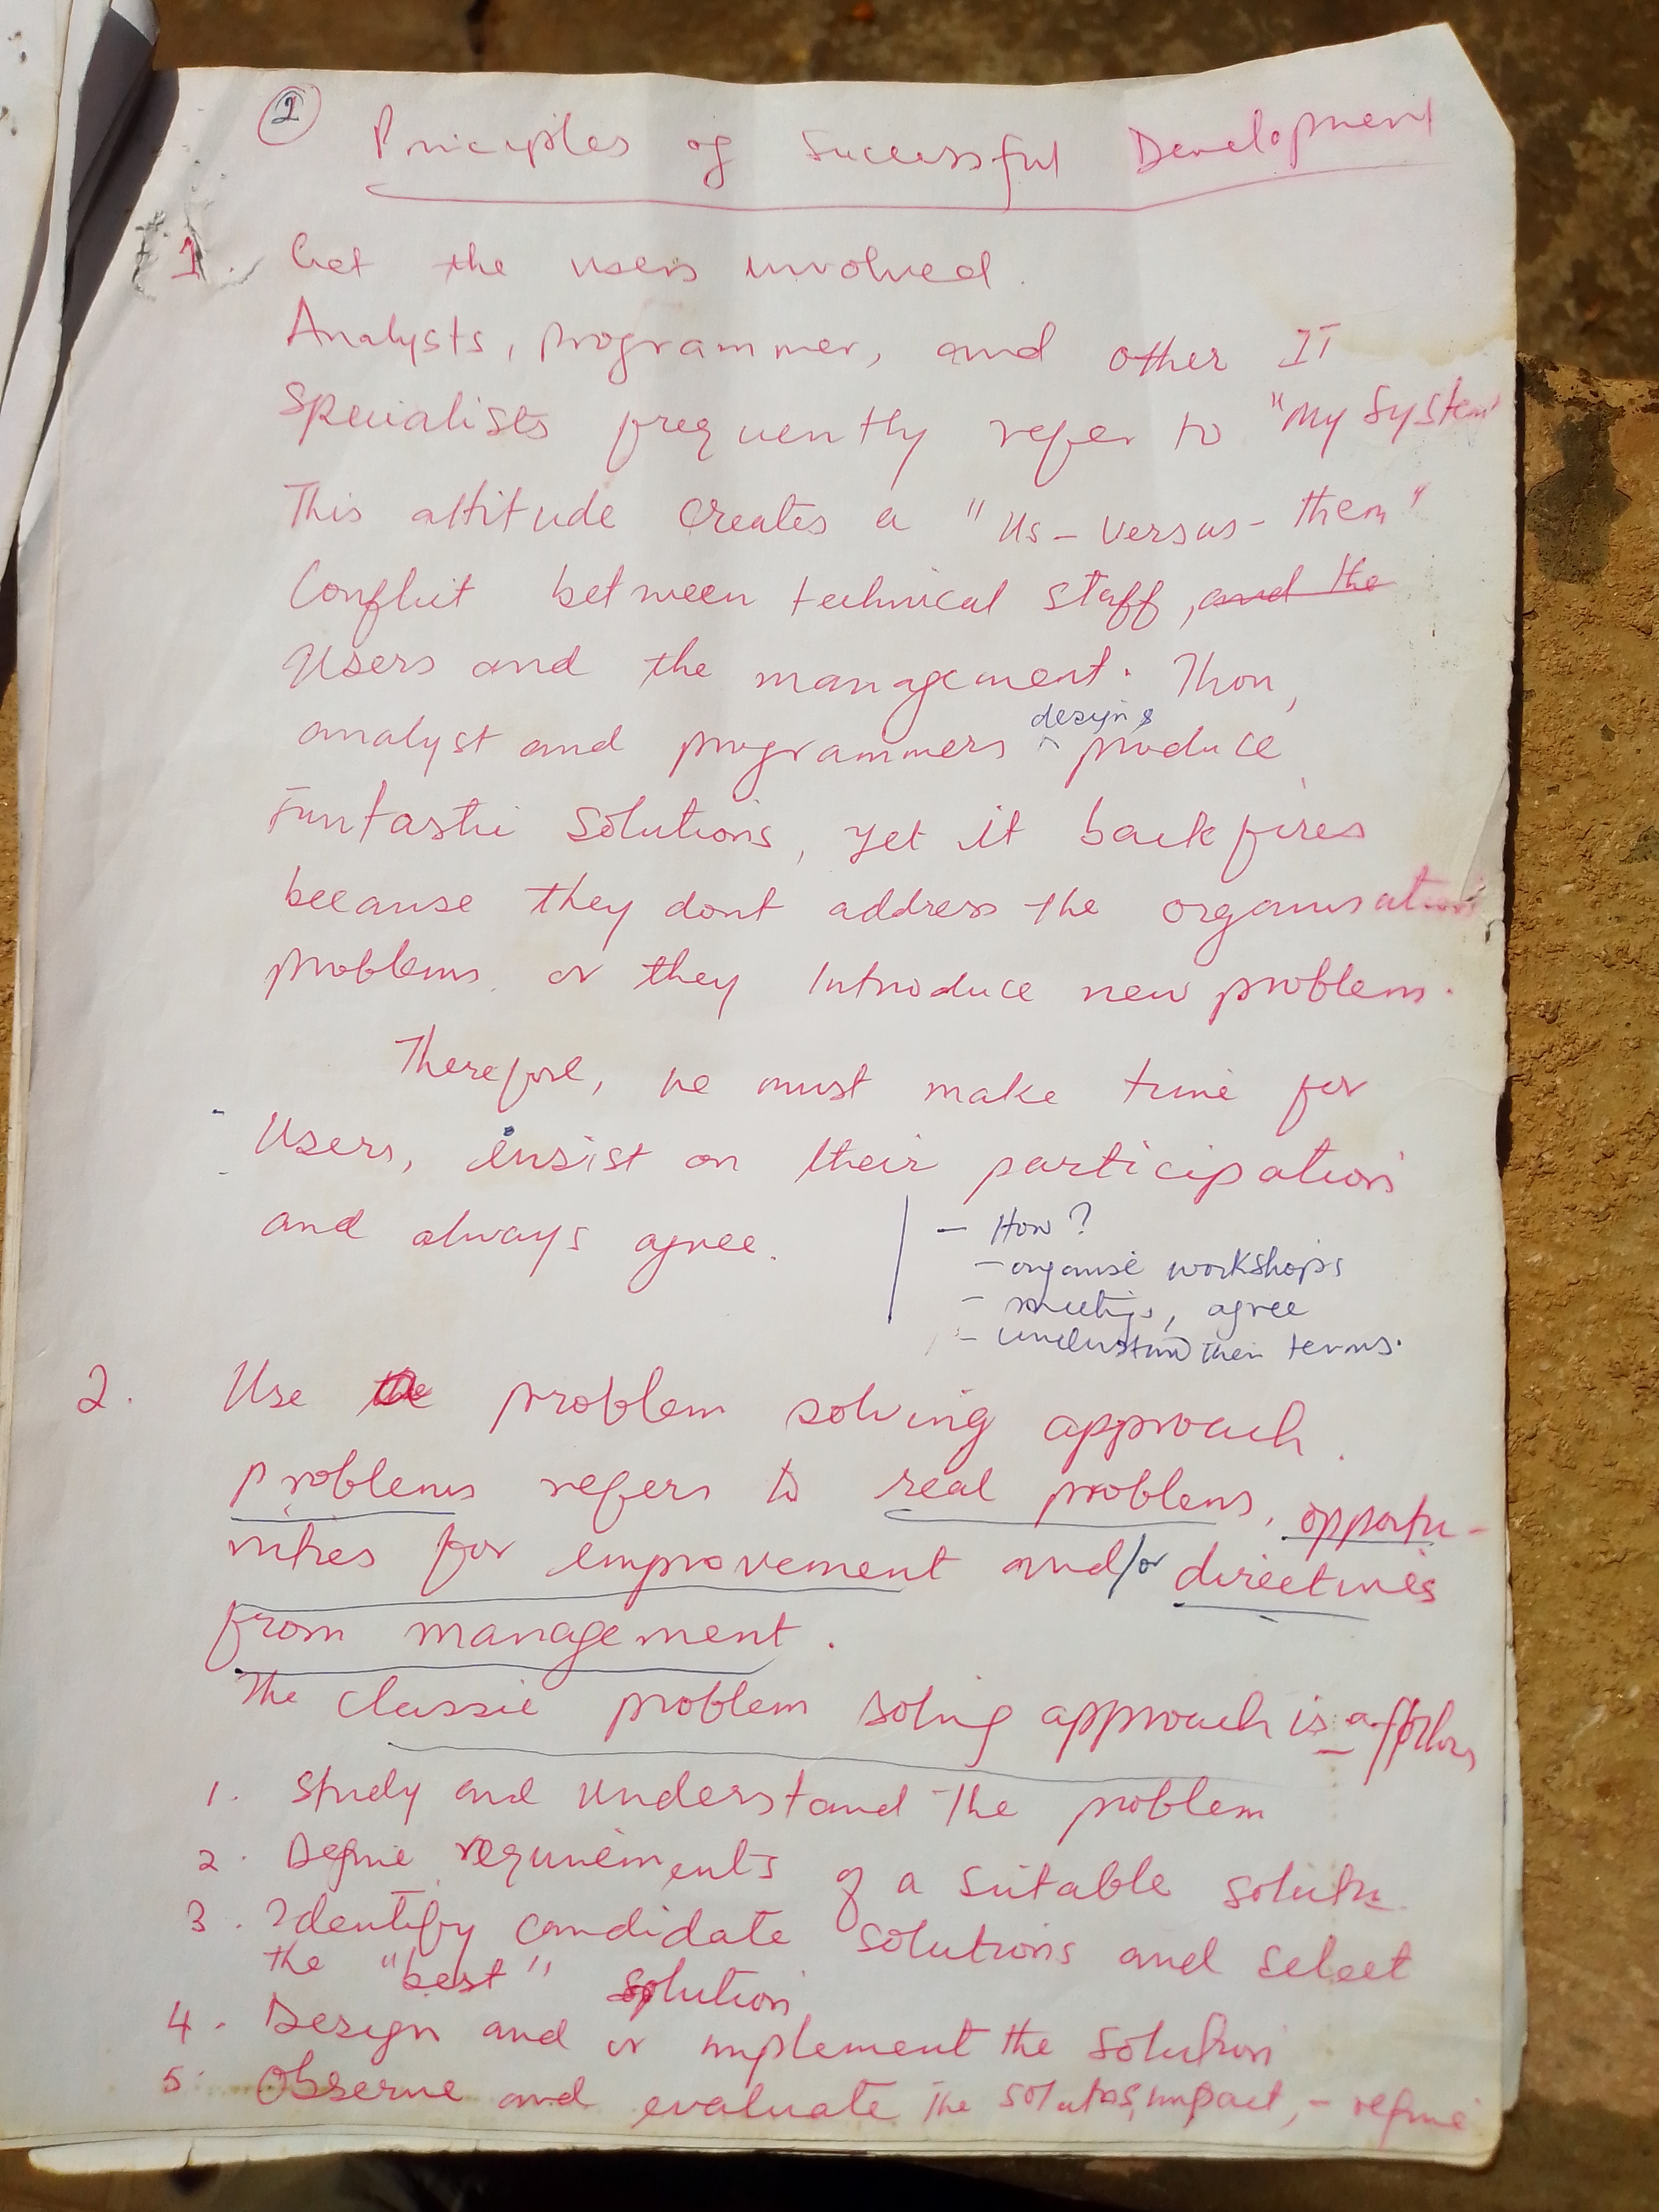 2
Principles of Successful Development
1. Get the users involved.
Analysts, programmer, and other IT
Specialists frequently refer to "My System"
This attitude creates a "Us-Versus-them"
Conflict between technical staff, and the
Users and the management. Thou,
designs
analyst and programmers ^ produce
Funtastic Solutions, yet it backfires
because they dont address the organisation
problems. or they Introduce new problems.
Therefore, we must make time for
Users, insist on their participation
and always agree.
- How?
- organise workshops
- meetings, agree
- understand their terms.
2. Use the problem solving approach.
Problems refers to real problems, opportu-
nities for improvement and/or directives
from management.
The classic problem solving approach is as follows
1. Study and Understand the problem
2. Define requirements of a suitable solution
3. Identify candidate solutions and select
the "best" solution
4. Design and or implement the solution
5. Observe and evaluate the solutions impact, - refine